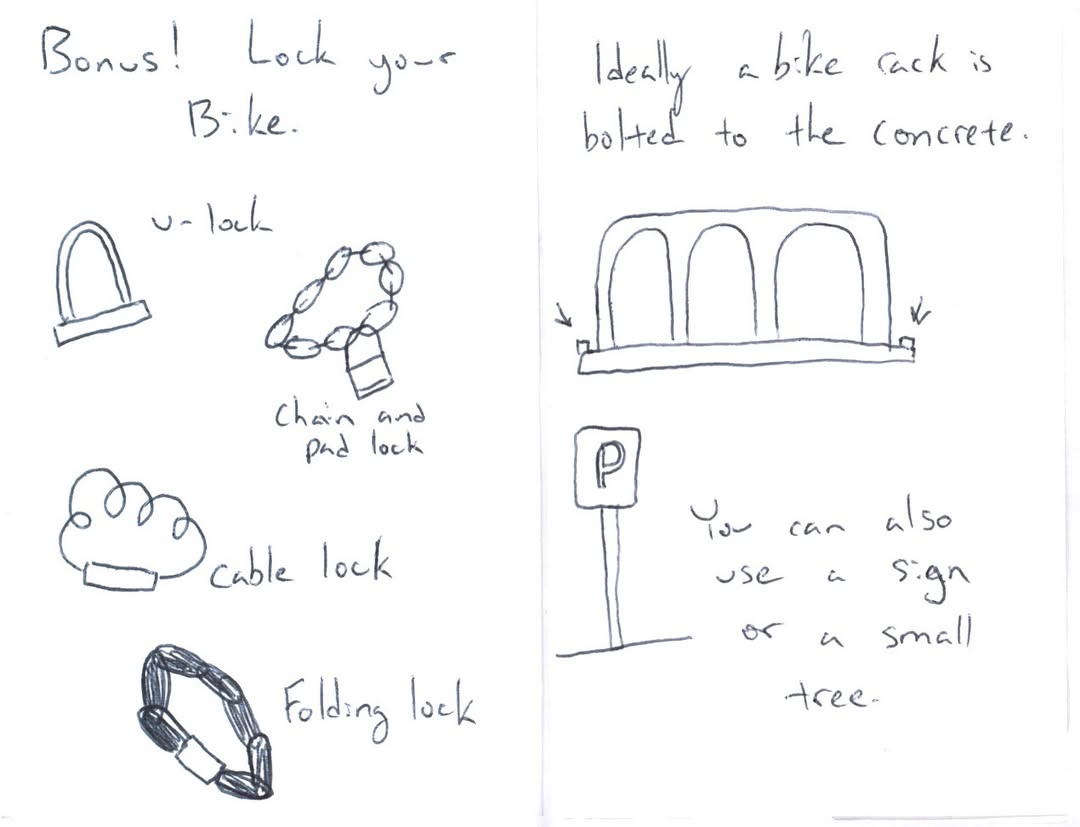 Bonus! Lock your
Bike.
u-lock
Chain and
pad lock
Cable lock
Folding lock
Ideally a bike rack is
bolted to the concrete.
P
You can also
use a sign
or a small
tree.